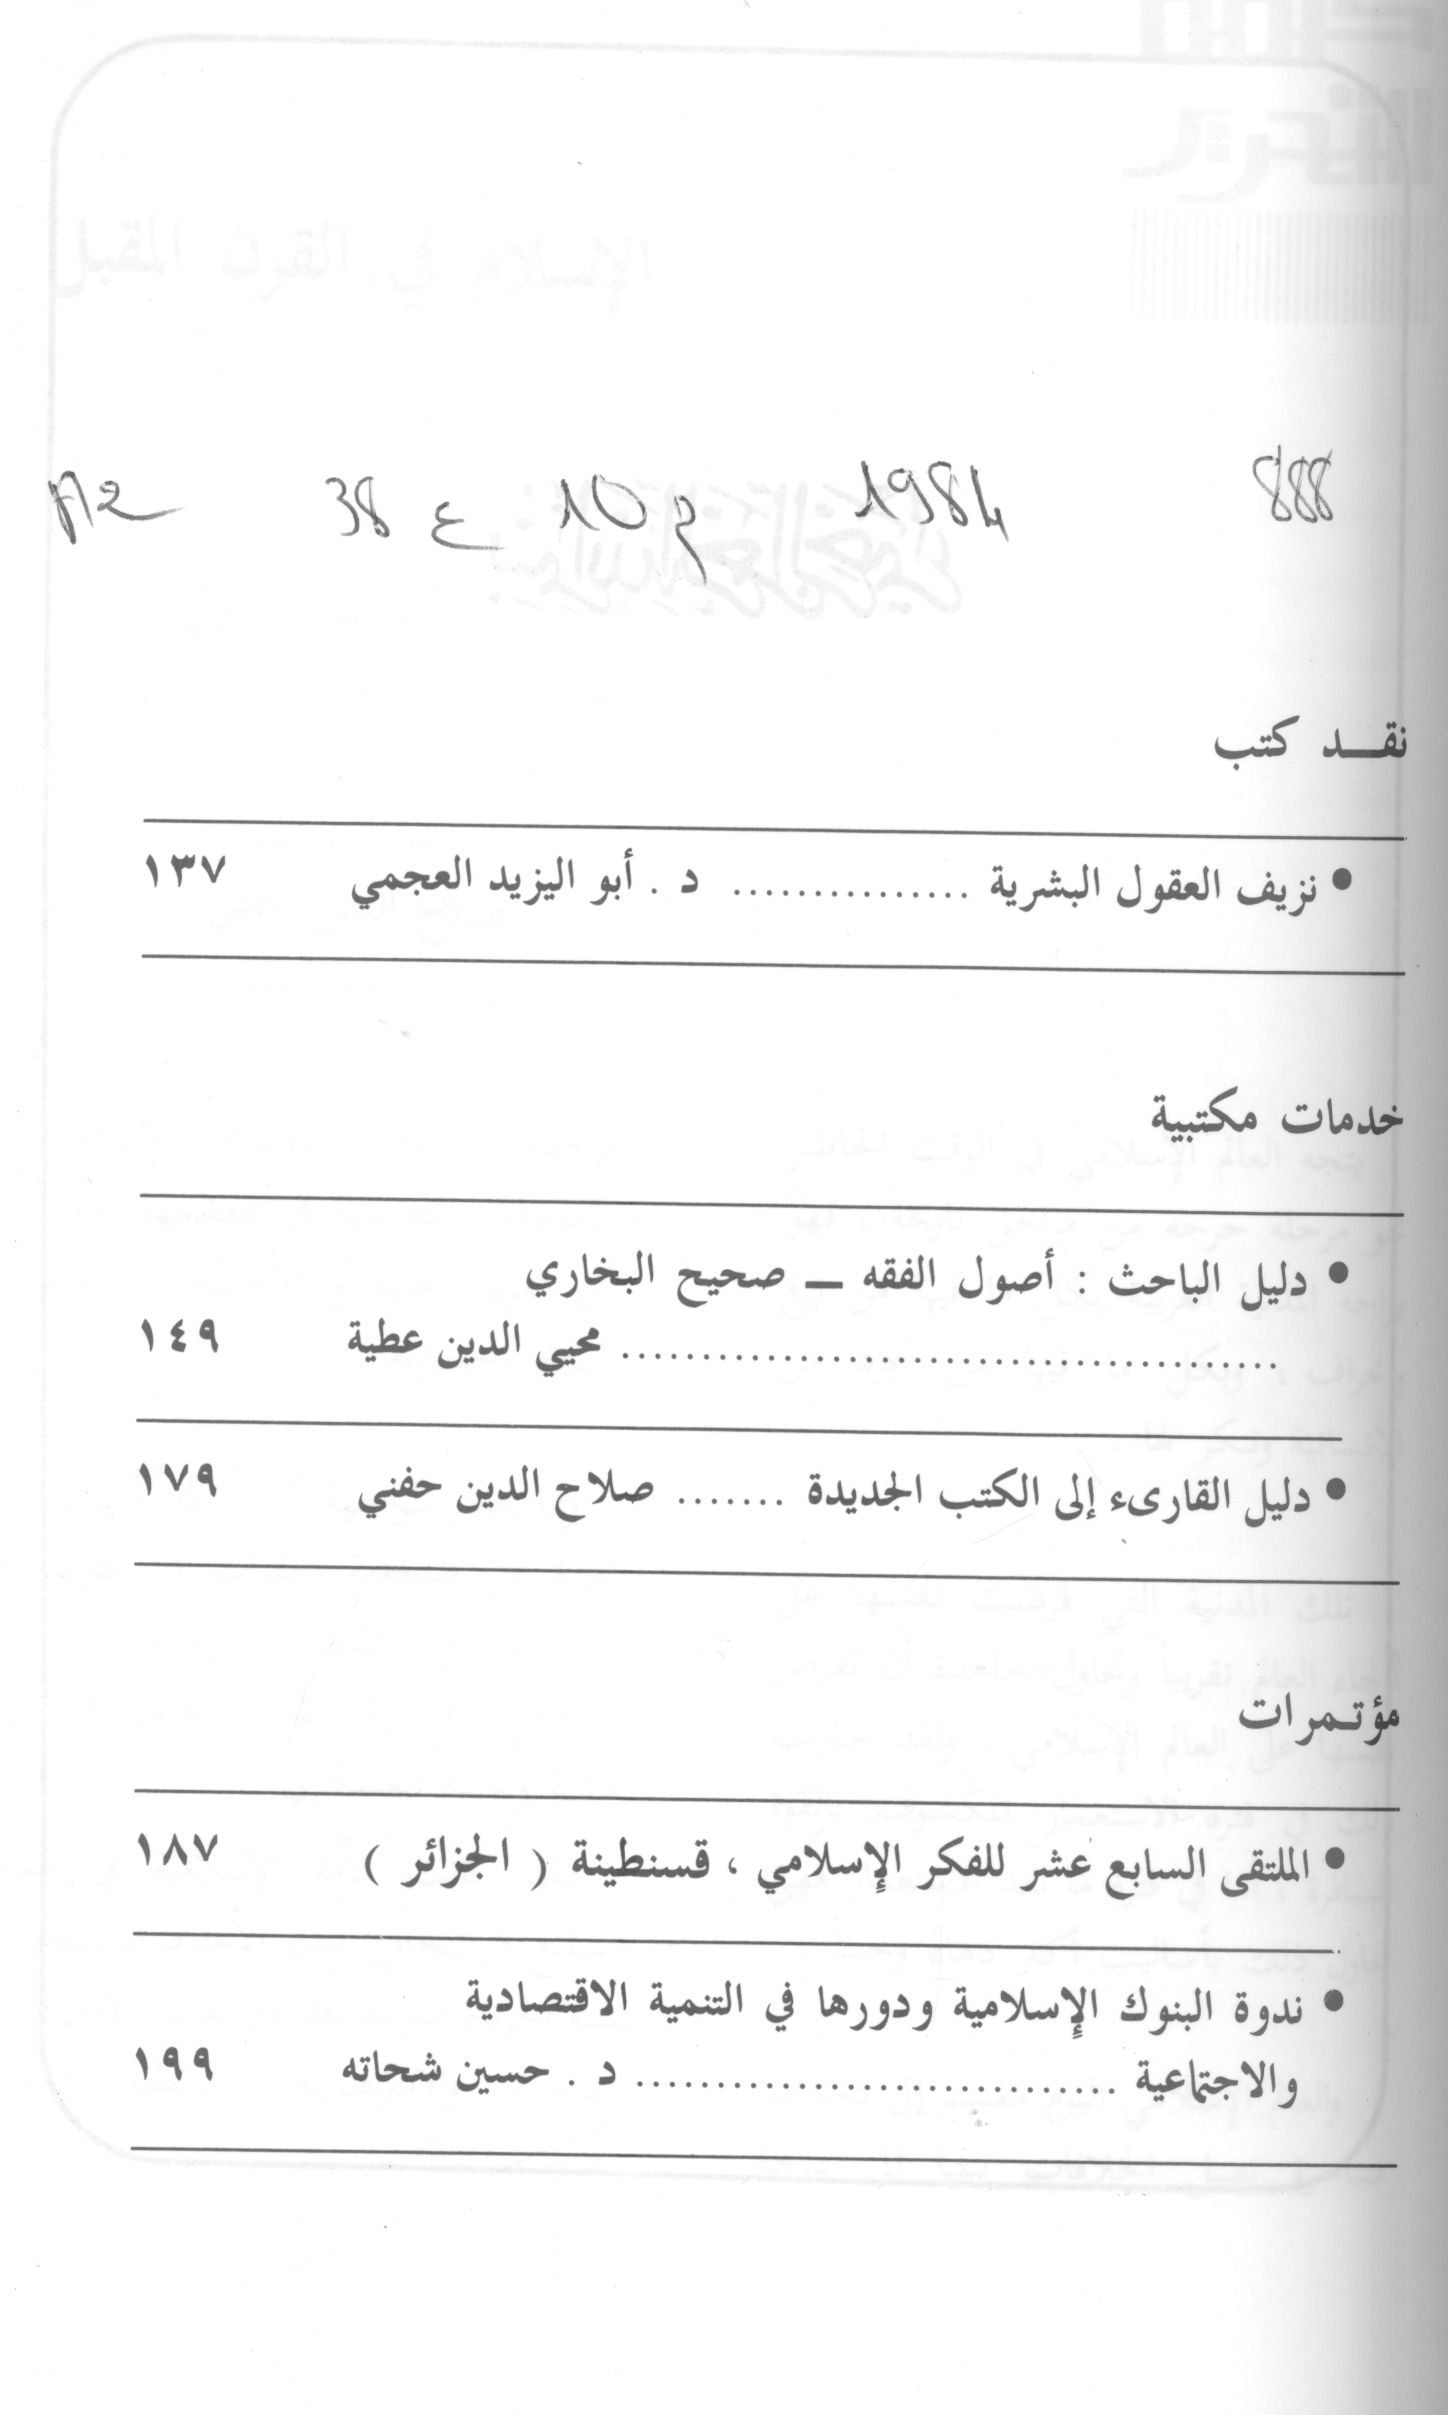 888 1984 م 10 ع 38
نقـــد كتب
• نزيف العقول البشرية ............... د . أبو اليزيد العجمي ١٣٧
خدمات مكتبية
• دليل الباحث : أصول الفقه ـــ صحيح البخاري
......................................... محيي الدين عطية ١٤٩
• دليل القارىء إلى الكتب الجديدة ....... صلاح الدين حفني ١٧٩
مؤتـمرات
• الملتقى السابع عشر للفكر الإسلامي ، قسنطينة ( الجزائر ) ١٨٧
• ندوة البنوك الإسلامية ودورها في التنمية الاقتصادية
والاجتماعية .............................. د . حسين شحاته ١٩٩